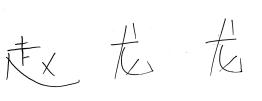 赵龙龙